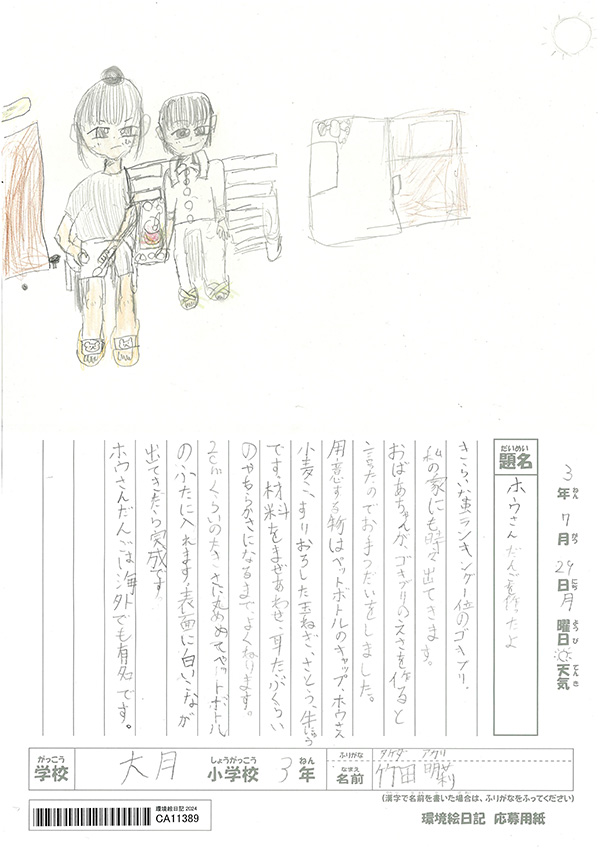 3年 7月 29日 月曜日 天気
ねん がつ にち ようび てんき
だいめい
題名
ホウさんだんごを作ったよ
きらいな虫ランキング一位のゴキブリ。
私の家にも時々出てきます。
おばあちゃんが、ゴキブリのえさを作ると
言ったのでお手つだいをしました。
用意する物はペットボトルのキャップ、ホウさん
小麦こ、すりおろした玉ねぎ、さとう、牛にゅう
です。材料をまぜあわせ、耳たぶくらい
のやわらかさになるまで、よくねります。
2cmくらいの大きさに丸めてペットボトル
のふたに入れます。表面に白いこなが
出てきたら完成です。
ホウさんだんごは海外でも有名です。
がっこう しょうがっこう ねん
学校 大月 小学校 3年
ふりがな タケダ アカリ
なまえ
名前 竹田 明莉
(漢字で名前を書いた場合は、ふりがなをふってください)
環境絵日記 2024
CA11389
環境絵日記 応募用紙